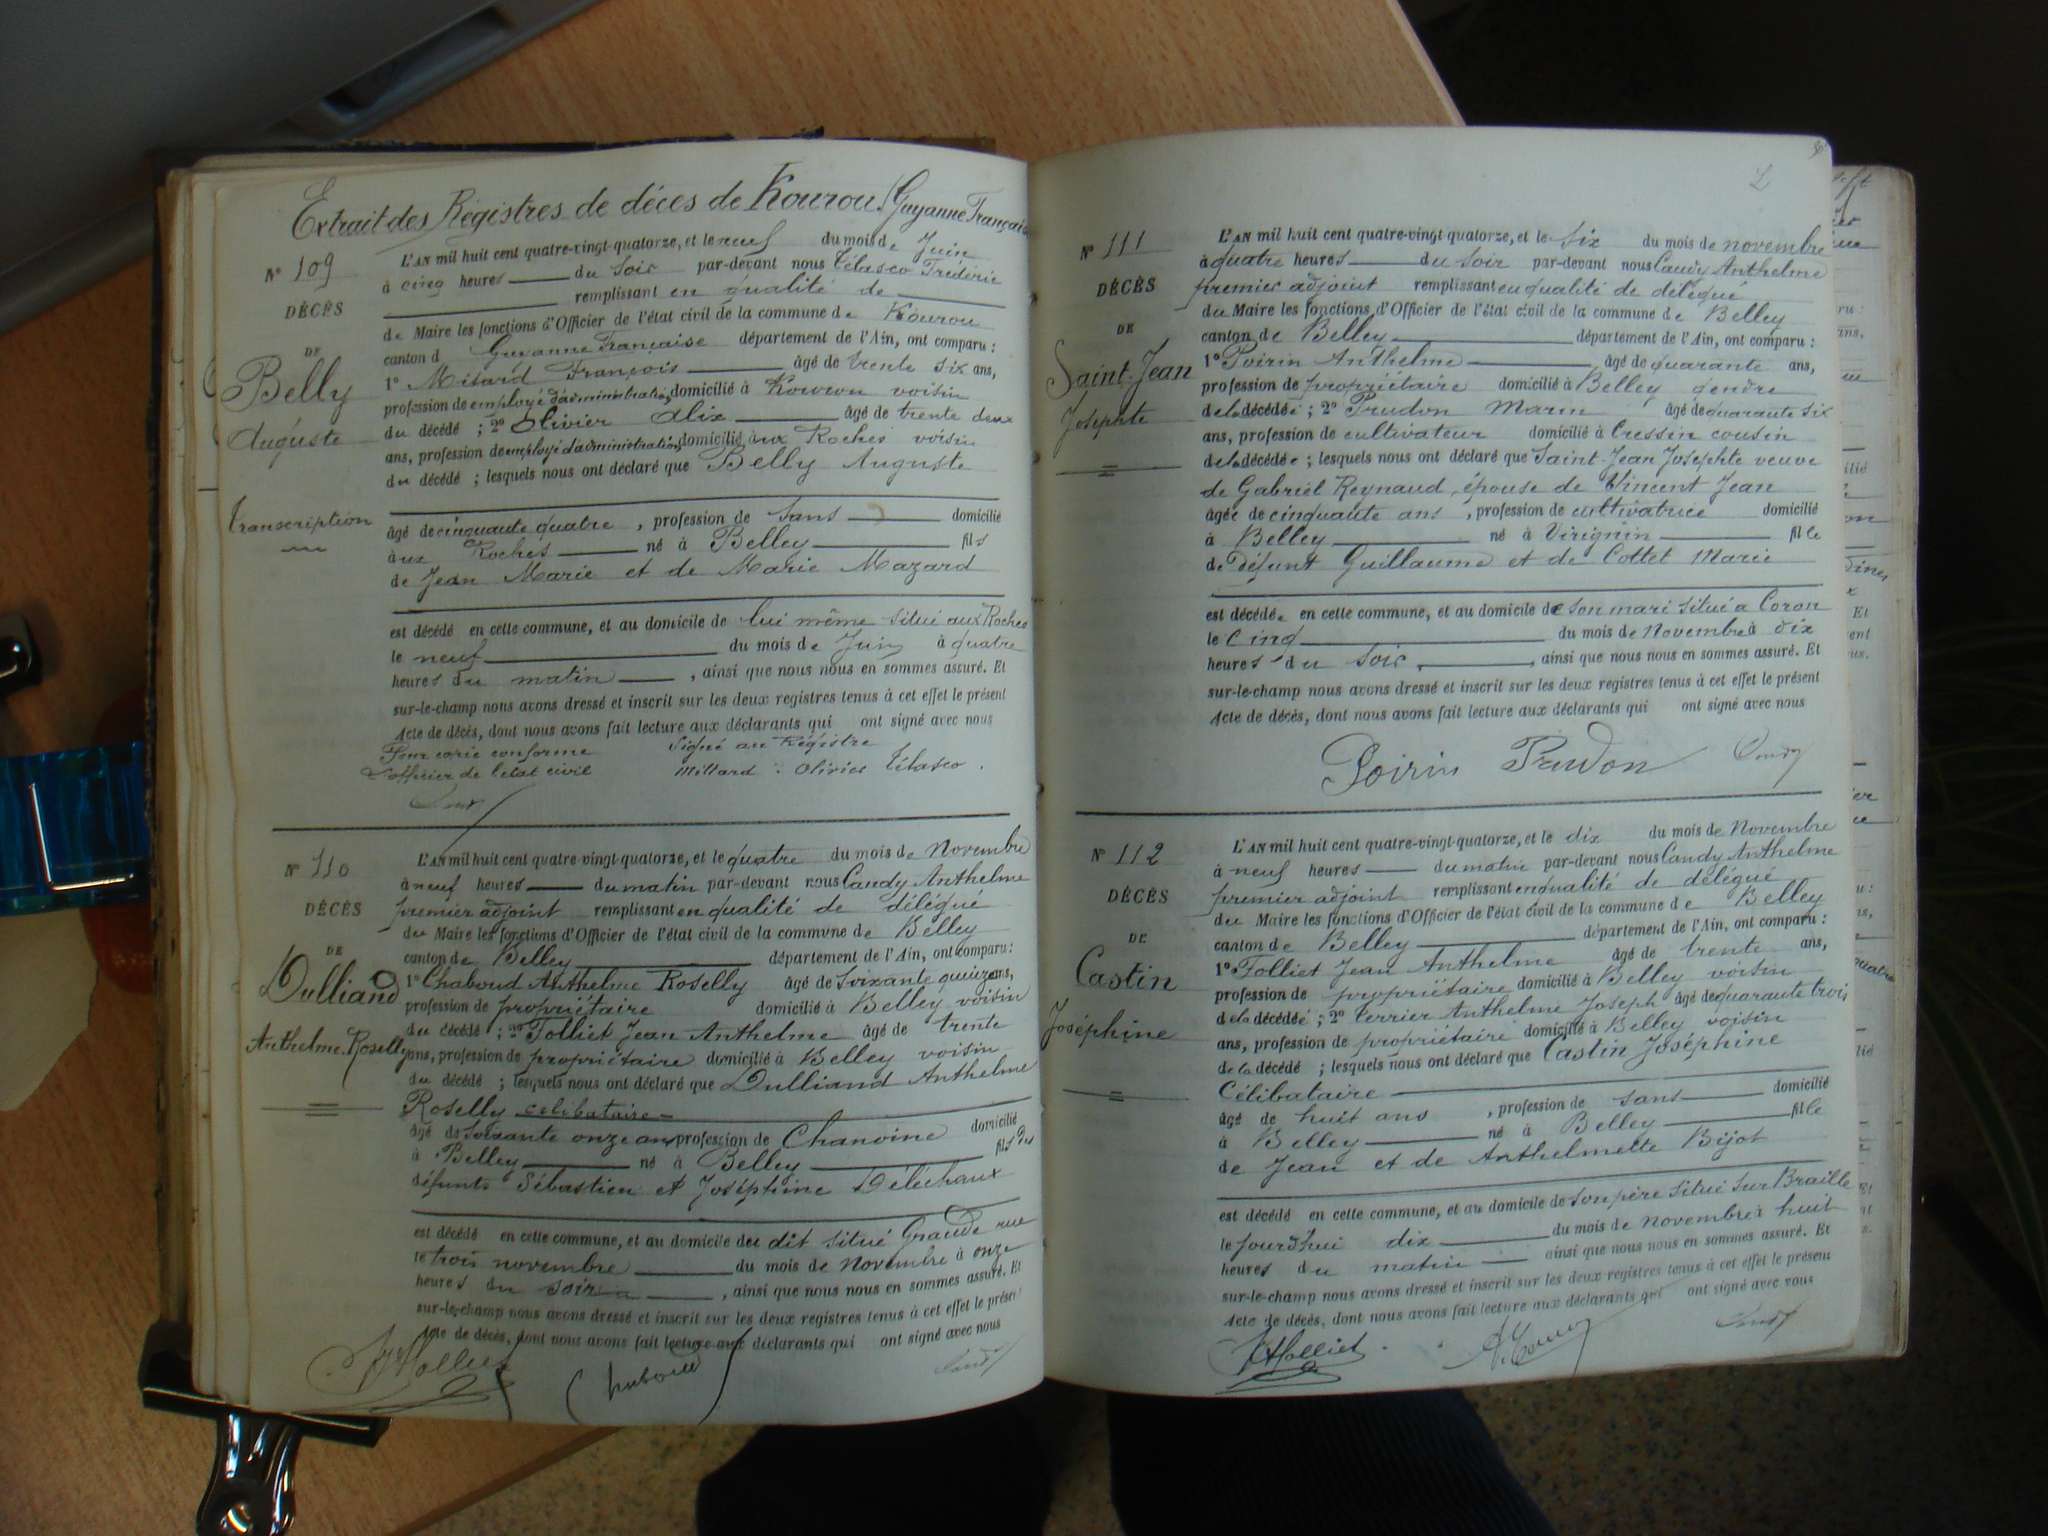 Extrait des Régistres de déces de Kourou (Guyanne Française
N° 109
DÉCÈS
DE
Belly
Auguste
Transcription
L'AN mil huit cent quatre-vingt-quatorze, et le neuf du mois de Juin
à cinq heures du soir par-devant nous Télasco Frédéric
remplissant en qualité de
de Maire les fonctions d'Officier de l'état civil de la commune de Kourou
canton d Guyanne Française département de l'Ain, ont comparu :
1° Mitard François âgé de trente six ans,
profession de employé d'administration domicilié à Kourou voisin
du décédé ; 2° Olivier Alix âgé de trente deux
ans, profession de employé d'administration domicilié aux Roches voisin
du décédé ; lesquels nous ont déclaré que Belly Auguste
âgé de cinquante quatre , profession de sans domicilié
aux Roches né à Belley fils
de Jean Marie et de Marie Mazard
est décédé en cette commune, et au domicile de lui même situé aux Roches
le neuf du mois de Juin à quatre
heures du matin , ainsi que nous nous en sommes assuré. Et
sur-le-champ nous avons dressé et inscrit sur les deux registres tenus à cet effet le présent
Acte de décès, dont nous avons fait lecture aux déclarants qui ont signé avec nous
Pour copie conforme Signé au Régistre
L'officier de l'état civil Mittard : Olivier Télasco .
N° 110
DÉCÈS
DE
Dulliand
Anthelme Roselly
L'AN mil huit cent quatre-vingt-quatorze, et le quatre du mois de Novembre
à neuf heures du matin par-devant nous Caudy Anthelme
premier adjoint remplissant en qualité de délégué
du Maire les fonctions d'Officier de l'état civil de la commune de Belley
canton de Belley département de l'Ain, ont comparu :
1° Chaboud Anthelme Roselly âgé de soixante quinze ans,
profession de propriétaire domicilié à Belley voisin
du décédé ; 2° Folliet Jean Anthelme âgé de trente
ans, profession de propriétaire domicilié à Belley voisin
du décédé ; lesquels nous ont déclaré que Dulliand Anthelme
Roselly célibataire
âgé de soixante onze ans profession de Chanoine domicilié
à Belley né à Belley fils des
défunts Sébastien et Joséphine Déléchaux
est décédé en cette commune, et au domicile du dit situé Grande rue
le trois novembre du mois de Novembre à onze
heures du soir , ainsi que nous nous en sommes assuré. Et
sur-le-champ nous avons dressé et inscrit sur les deux registres tenus à cet effet le présent
Acte de décès, dont nous avons fait lecture aux déclarants qui ont signé avec nous
JAFolliet Chaboud Caudy
N° 111
DÉCÈS
DE
Saint-Jean
Josephte
L'AN mil huit cent quatre-vingt-quatorze, et le six du mois de novembre
à quatre heures du soir par-devant nous Caudy Anthelme
premier adjoint remplissant en qualité de délégué
du Maire les fonctions d'Officier de l'état civil de la commune de Belley
canton de Belley département de l'Ain, ont comparu :
1° Poirin Anthelme âgé de quarante ans,
profession de propriétaire domicilié à Belley gendre
de la décédée ; 2° Prudon Marin âgé de quarante six
ans, profession de cultivateur domicilié à Cressin cousin
de la décédée ; lesquels nous ont déclaré que Saint-Jean Josephte veuve
de Gabriel Reynaud, épouse de Vincent Jean
âgée de cinquante ans , profession de cultivatrice domicilié
à Belley né à Virignin fille
de Défunt Guillaume et de Cottet Marie
est décédée en cette commune, et au domicile de son mari situé a Coron
le cinq du mois de Novembre à dix
heures du soir , ainsi que nous nous en sommes assuré. Et
sur-le-champ nous avons dressé et inscrit sur les deux registres tenus à cet effet le présent
Acte de décès, dont nous avons fait lecture aux déclarants qui ont signé avec nous
Poirin Prudon Caudy
N° 112
DÉCÈS
DE
Castin
Joséphine
L'AN mil huit cent quatre-vingt-quatorze, et le dix du mois de Novembre
à neuf heures du matin par-devant nous Caudy Anthelme
premier adjoint remplissant en qualité de délégué
du Maire les fonctions d'Officier de l'état civil de la commune de Belley
canton de Belley département de l'Ain, ont comparu :
1° Folliet Jean Anthelme âgé de trente ans,
profession de propriétaire domicilié à Belley voisin
de la décédée ; 2° Terrier Anthelme Joseph âgé de quarante trois
ans, profession de propriétaire domicilié à Belley voisin
de la décédé ; lesquels nous ont déclaré que Castin Joséphine
Célibataire
âgé de huit ans , profession de sans domicilié
à Belley né à Belley fille
de Jean et de Anthelmette Bijot
est décédée en cette commune, et au domicile de son père situé sur Braille
le jourd'hui dix du mois de novembre à huit
heures du matin ainsi que nous nous en sommes assuré. Et
sur-le-champ nous avons dressé et inscrit sur les deux registres tenus à cet effet le présent
Acte de décès, dont nous avons fait lecture aux déclarants qui ont signé avec nous
JAFolliet Caudy